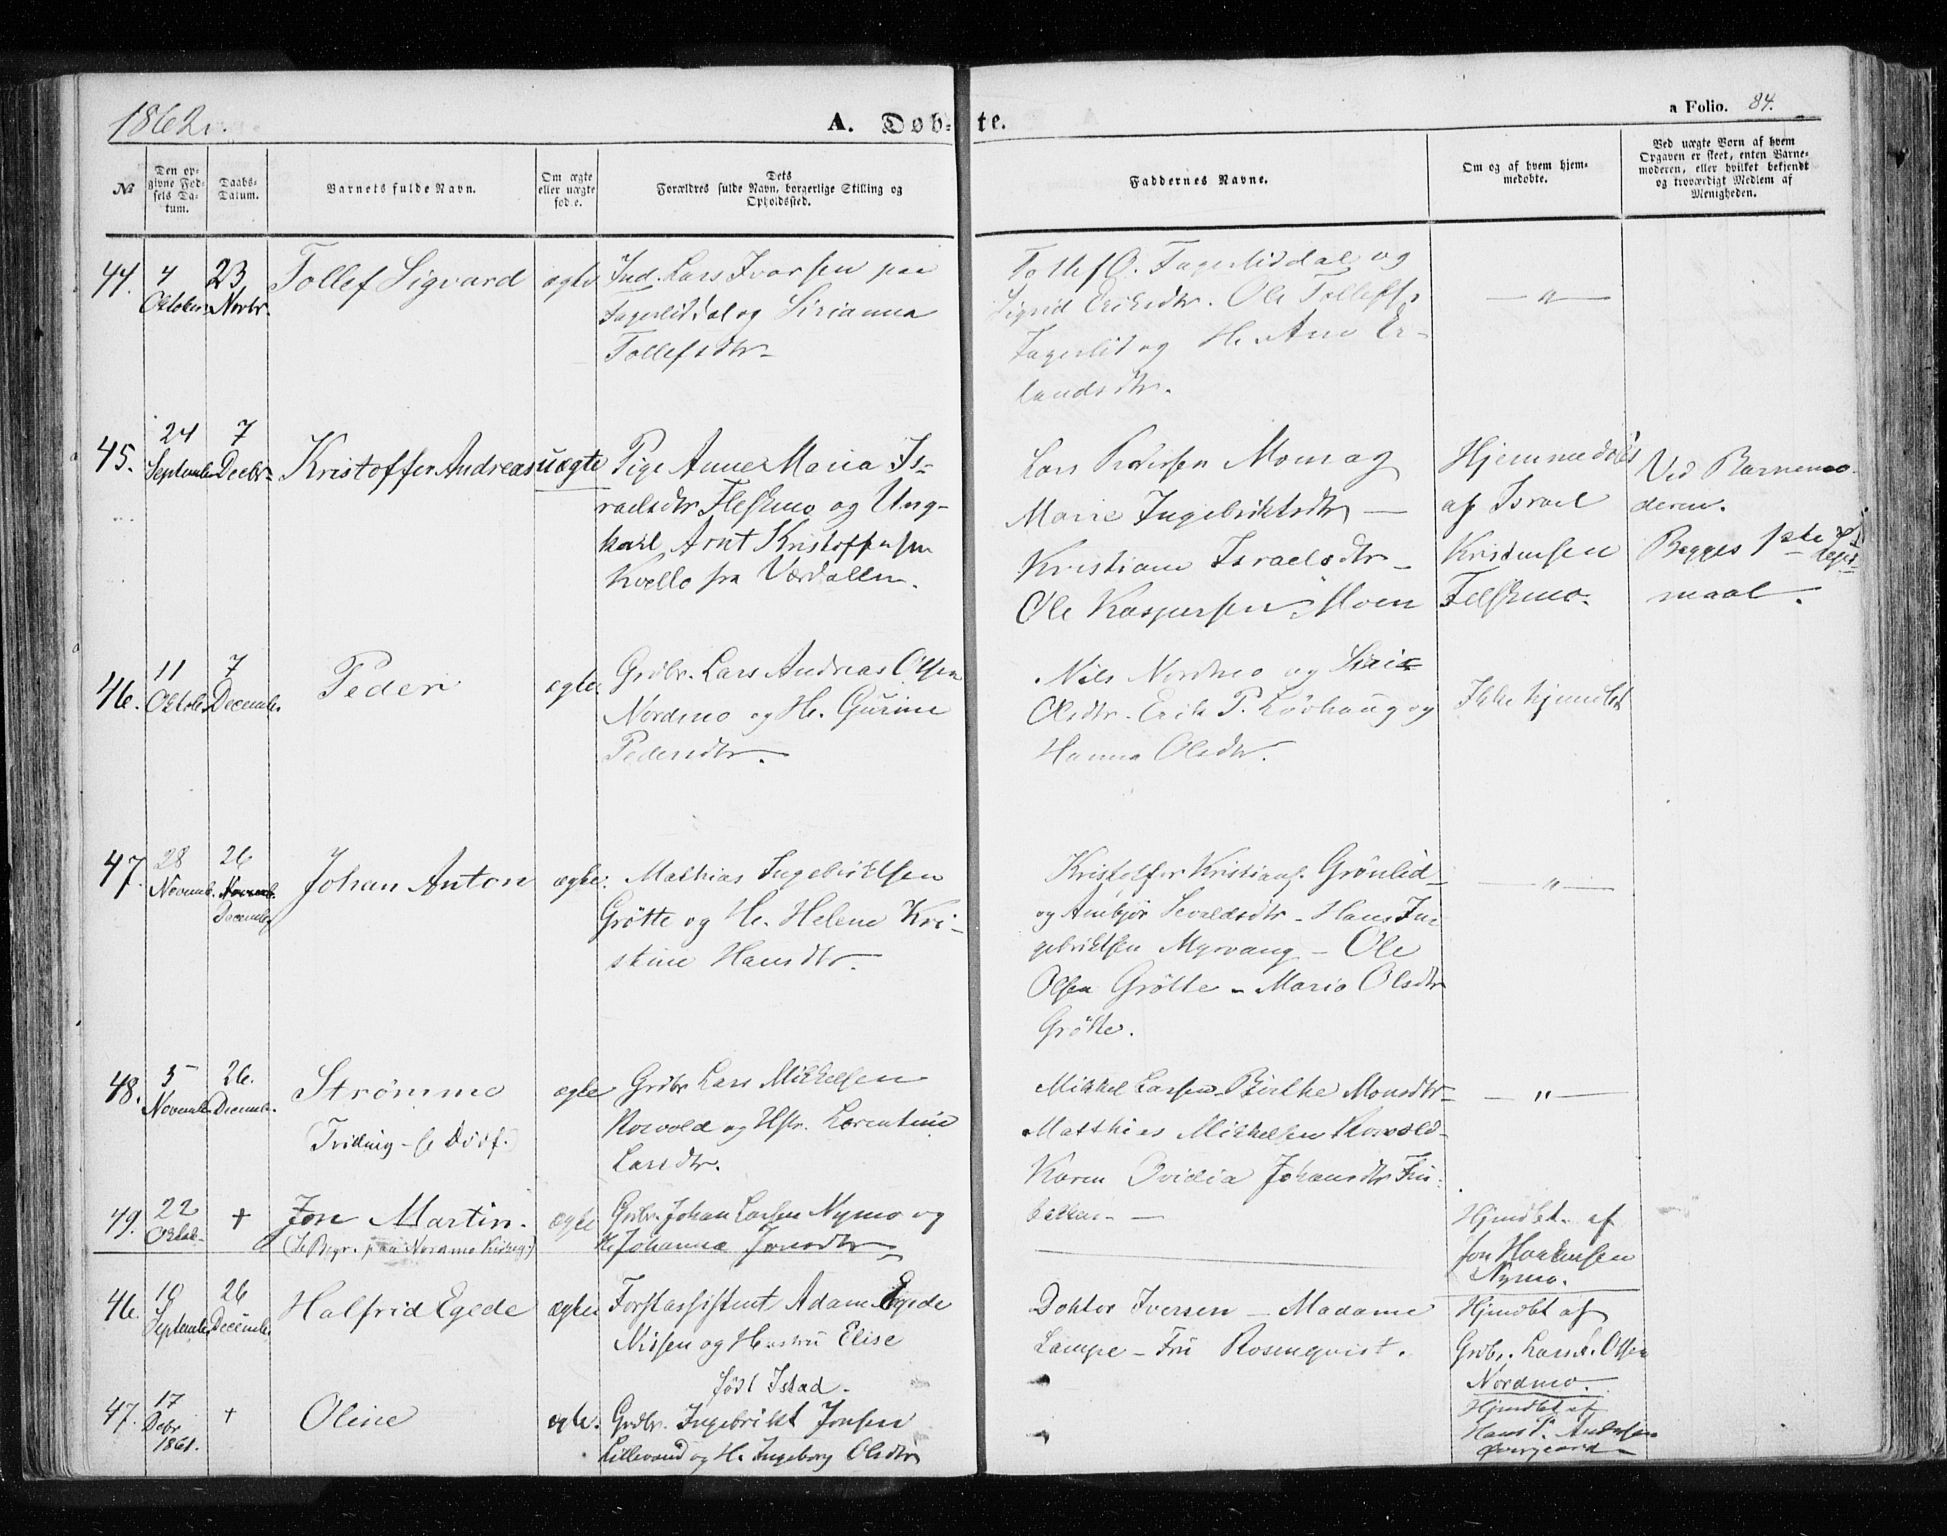 1862.
A. Døb-te.
a Folio. 84.
№
Den opgivne Fødsels Datum.
Daabs-Datum.
Barnets fulde Navn.
Om ægte eller uægte fød.e.
Dets Forældres fulde Navn, borgerlige Stilling og Opholdssted.
Faddernes Navne.
Om og af hvem hjemmedøbte.
Ved uægte Børn af hvem Opgaven er skeet, enten Barnemoderen, eller hvilket bekjendt og troværdigt Medlem af Menigheden.
44. 4 Oktober. 23 Novbr. Tollef Sigvard ægte
Ind. Lars Ivarsen paa
Fagerliddal og Sirianna
Tollefsdtr
Tollef O. Fagerliddal og
Sigrid Eriksdtr. Ole Tollefs.
Fagerlid og H. Ane Er-
landsdtr.
— " —
45. 24 September 7 Decbr Kristoffer Andreas uægte
Pige Anne Maria Is-
raelsdtr Fleskmo og Ung-
karl Arnt Kristoffersen
Kvello fra Værdalen.
Lars Pedersen Momrag
Marie Ingebriktsdtr —
Kristiane Israelsdtr —
Ole Kaspersen Moen
Hjemmedøbt
af Israel
Kristensen
Felskmo.
Ved Barnemo-
deren.
Begges 1ste Leier-
maal.
46. 11 Oktob. 7 Decemb. Peder ægte.
Grdbr. Lars Andreas Olsen
Nordmo og H. Gurine
Pedersdtr.
Nils Nordmo og Siri
Olsdtr. Erik P. Løvhaug og
Hanna Olsdtr.
Ikke hjemdbt
47. 28 Novemb. 26 Novemb. Decemb. Johan Anton ægte.
Mathias Ingebriktsen
Grötte og H. Helene Kri-
stine Hansdtr.
Kristoffer Kristians. Grönlid
og Ambjör Sevaldsdtr - Hans In
gebriktsen Myrvang - Ole
Olsen Grötte - Maria Olsdtr
Grötte.
— " —
48. 5 Novemb. 26. Decemb. Strømme ægte
Grdbr Lars Mikkelsen
Rosvold og Hstr. Lorentine
Larsdtr.
Mikkel Larsen Birthe Monsdtr
Matthias Mikkelsen Rosvold
Karen Ovidia Johansdtr
— " —
49. 22 Oktob. + Jon Martin. ægte
Grdbr. Johan Larsen Nymo og
H. Johanna Jonsdtr
Hjmdbt. af
Jon Haakensen
Nymo.
46. 10 September 26 Decemb. Halfrid Egede ægte
Forstassistent Adam Egede
Nissen og Hustru Elise
født Istad.
Doktor Iversen - Madame
Lampe - Fru Rosenqvist.
Hjmdbt af
Grdbr. Lars A. Olsen
Nordmo.
47. 17 Debr 1861. + Oline ægte.
Grdbr. Ingebrikt Jonsen
Lillevand og H. Ingeborg Olsdtr
Hjmdbt af
Hans P. Andersen
Övergaard